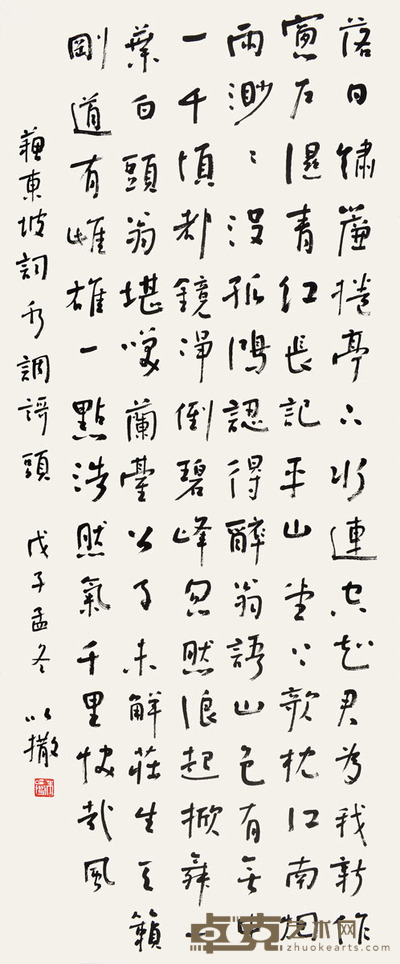 落日繡簾捲亭下水連空知君為我新作
窗戶濕青紅長記平山堂上欹枕江南烟
雨渺〻沒孤鴻認得醉翁語山色有無中
一千頃都鏡淨倒碧峰忽然浪起掀舞一
葉白頭翁堪笑蘭臺公子未解莊生天籟
剛道有雌雄一點浩然氣千里快哉風
蘇東坡詞水調謌頭 戊子孟冬 以撒
卓克艺术网
zhuokearts.com